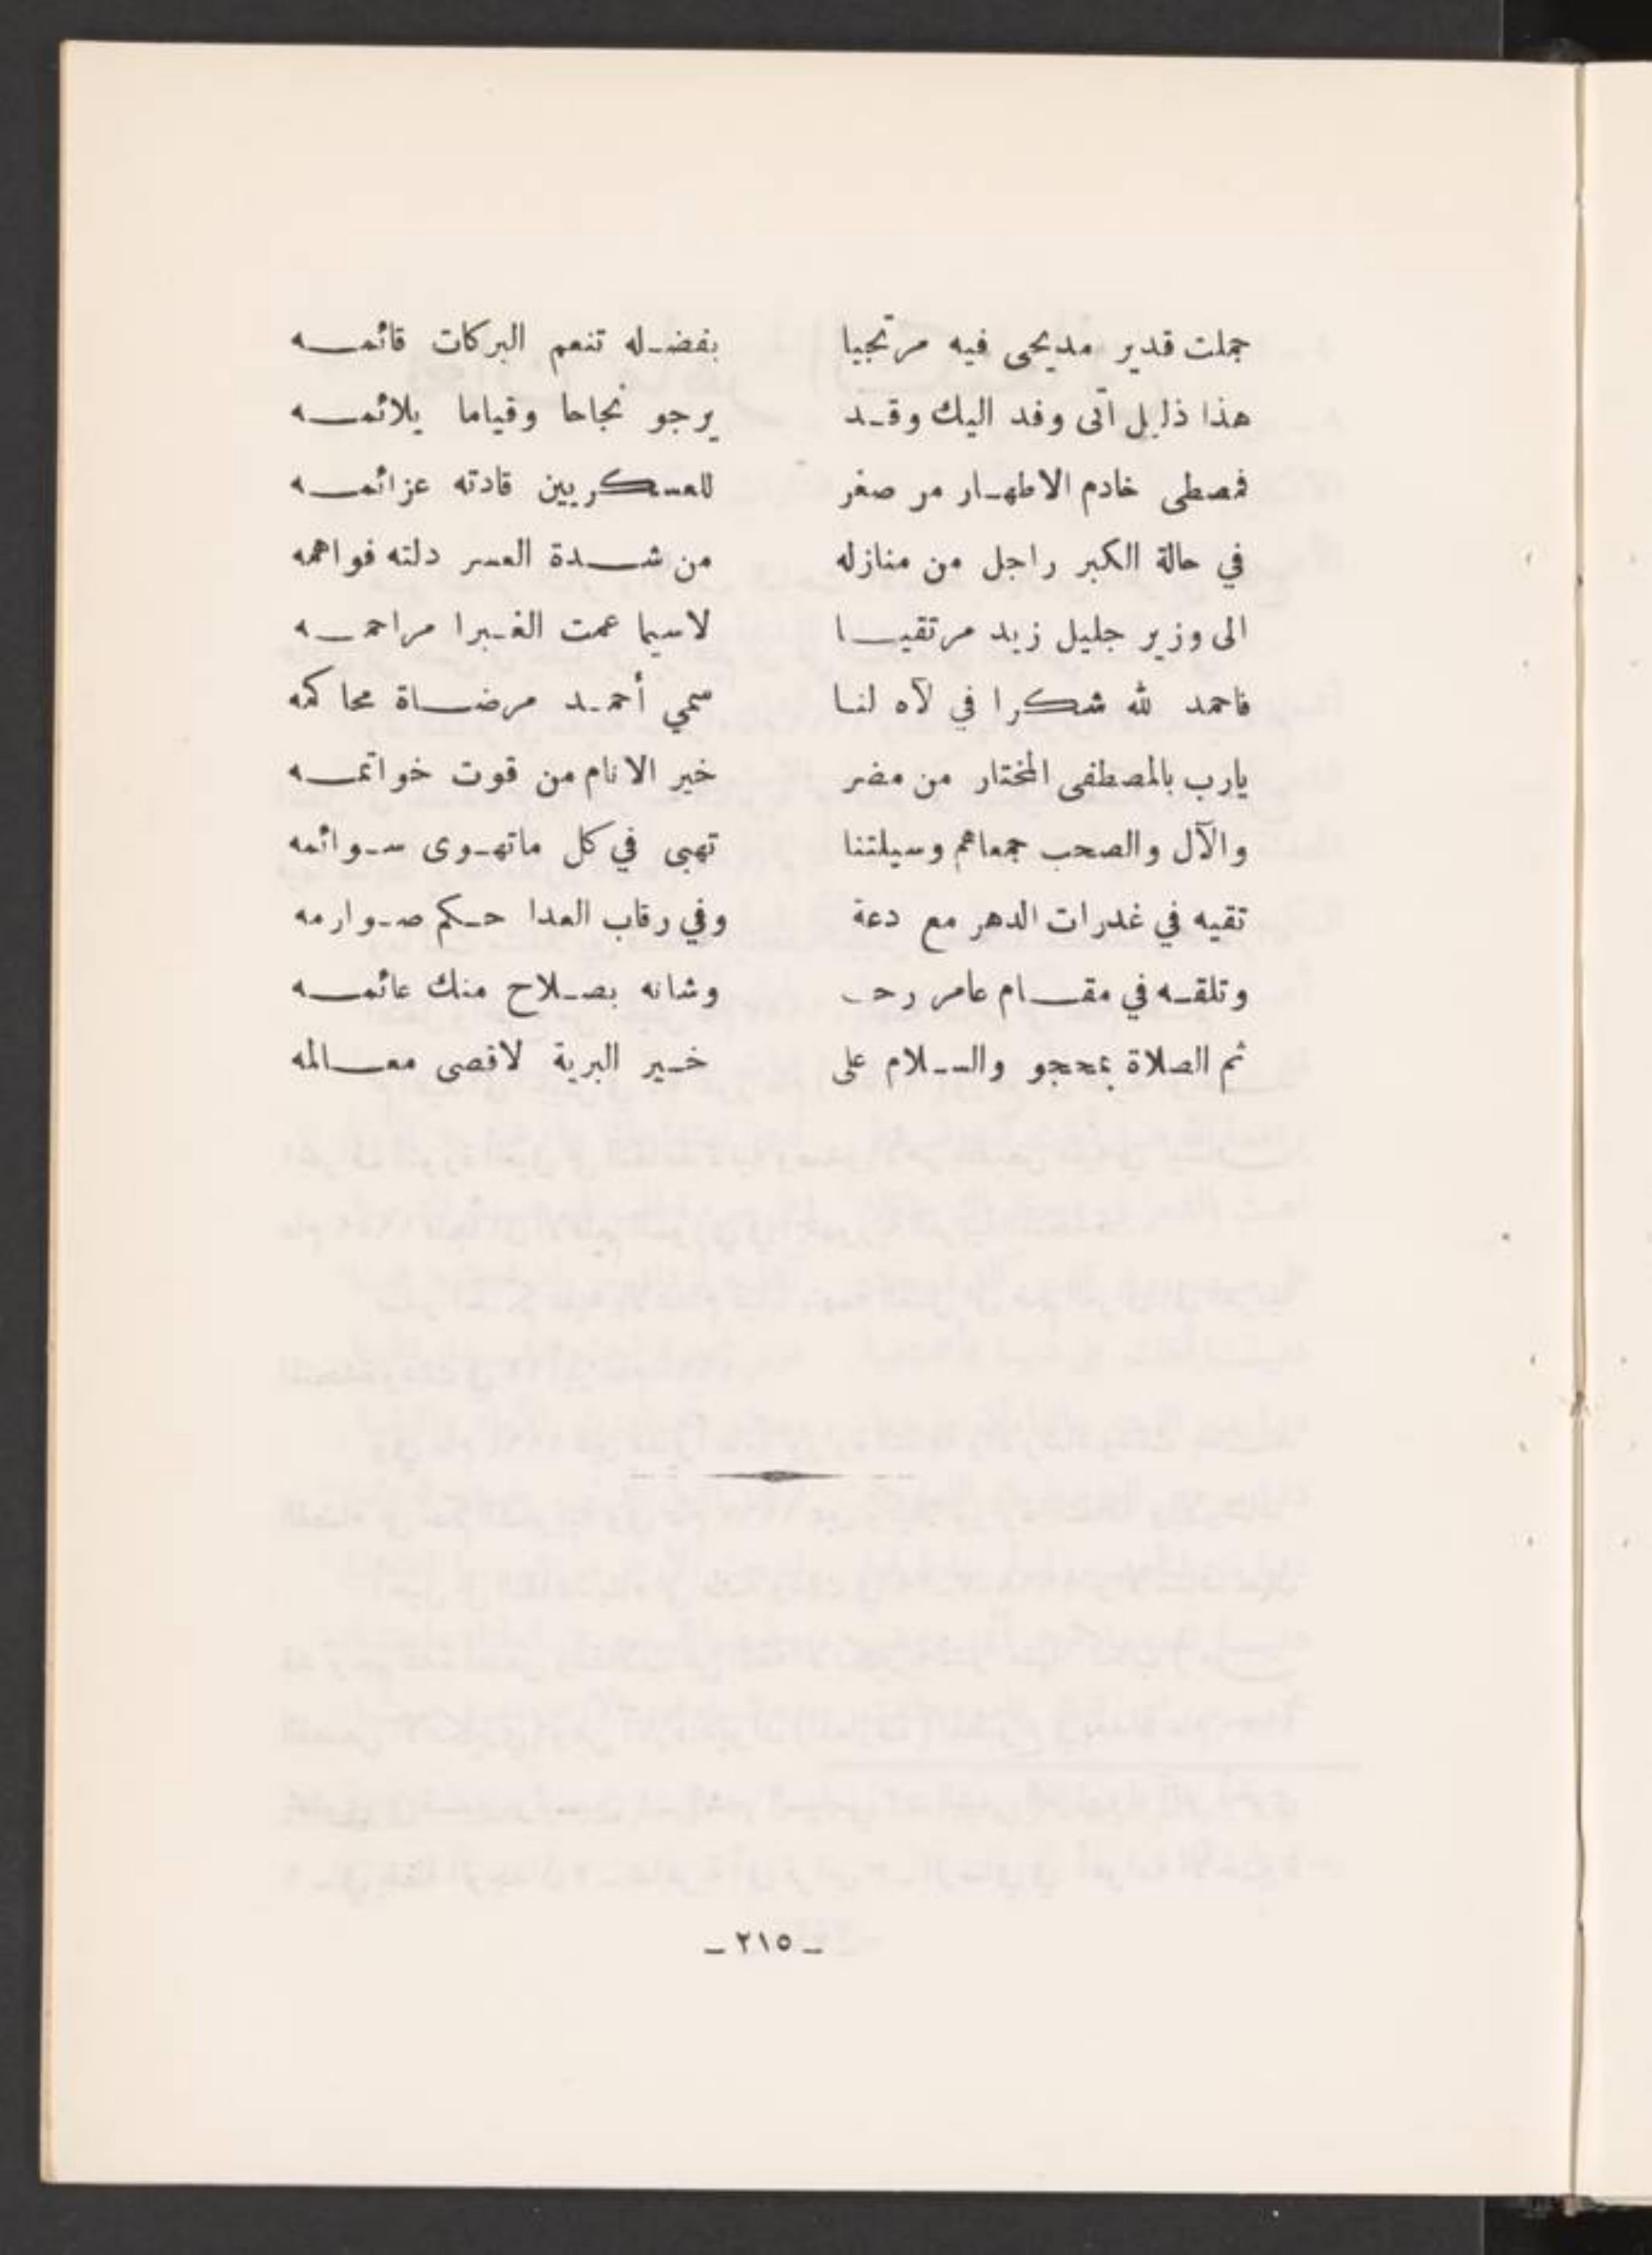 جملت قدير مديحى فيه مرتجيا بفضله تنعم البركات قائمه
هذا ذليل أتى وفد اليك وقد يرجو نجاحا وقياما يلائمه
فمصطى خادم الاطهار مر صغر للعسكريين قادته عزائمه
في حالة الكبر راجل من منازله من شدة العسر دلته فواهمه
الى وزير جليل زيد مرتقيا لاسيما عمت الغبرا مراحمه
فاحمد لله شكرا في لآه لنا سمي أحمد مرضاة محاكمه
يارب بالمصطفى المختار من مضر خير الانام من قوت خواتمه
والآل والصحب جمعاهم وسيلتنا تهبى في كل ماتهوى سوائمه
تقيه في غدرات الدهر مع دعة وفي رقاب العدا حكم صوارمه
وتلقه في مقام عامر رحب وشانه بصلاح منك عائمه
ثم الصلاة والسلام على خير البرية لاقصى معالمه
ـ ٢١٥ ـ